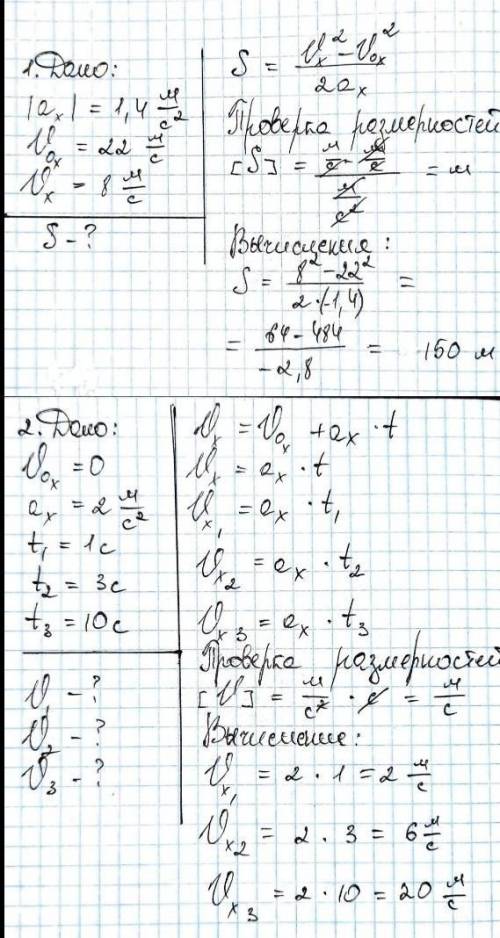 1. Дано:
|aₓ| = 1,4 м/с²
V₀ₓ = 22 м/с
Vₓ = 8 м/с
S - ?
S = (Vₓ² - V₀ₓ²) / 2aₓ
Проверка размерностей
[S] = (м/с · м/с) / (м/с²) = м
Вычисления:
S = (8² - 22²) / (2·(-1,4)) =
= (64 - 484) / (-2,8) = 150 м
2. Дано:
V₀ₓ = 0
aₓ = 2 м/с²
t₁ = 1с
t₂ = 3с
t₃ = 10с
V₁ - ?
V₂ - ?
V₃ - ?
Vₓ = V₀ₓ + aₓ · t
Vₓ = aₓ · t
Vₓ₁ = aₓ · t₁
Vₓ₂ = aₓ · t₂
Vₓ₃ = aₓ · t₃
Проверка размерностей
[V] = м/с² · с = м/с
Вычисление:
Vₓ₁ = 2 · 1 = 2 м/с
Vₓ₂ = 2 · 3 = 6 м/с
Vₓ₃ = 2 · 10 = 20 м/с